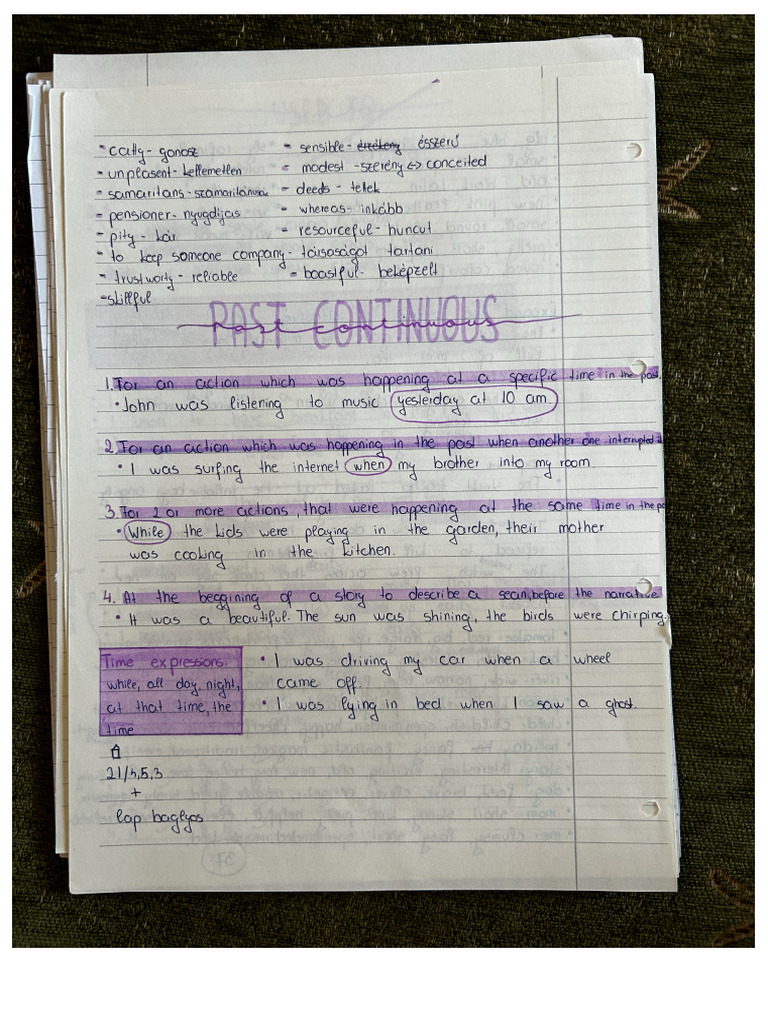 - catty - gonosz
- unpleasent - kellemetlen
- samaritans - szamaritánusok
- pensioner - nyugdíjas
- pity - kár
- to keep someone company - társaságot tartani
- trustworty - reliable
- skillful
- sensible - ésszerű
= modest - szerény ↔ conceited
- deeds - tettek
- whereas - inkább
- resourceful - huncut
- boastful - beképzelt
PAST CONTINUOUS
Past continuous
1. For an action which was happening at a specific time in the past.
• John was listening to music yesterday at 10 am
2. For an action which was happening in the past when another one interrupted it
• I was surfing the internet when my brother into my room.
3. For 2 or more actions, that were happening at the same time in the pa
• While the kids were playing in the garden, their mother
was cooking in the kitchen.
4. At the beggining of a story to describe a scan, before the narrative
• It was a beautiful. The sun was shining, the birds were chirping.
Time expressions:
while, all day, night,
at that time, the
time
• I was driving my car when a wheel
came off.
• I was lying in bed when I saw a ghost.
21/4,5,3
+
lap baglyos
37